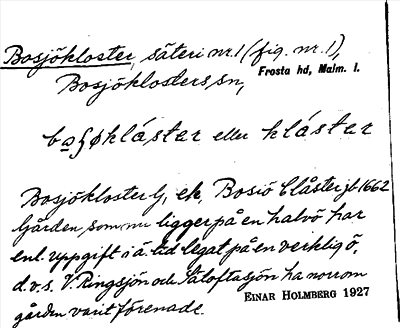 Bosjökloster, säteri nr 1 (fig. nr. 1),
Frosta hd, Malm. l.
Bosjöklosters sn,
klástar eller klástar
Bosjökloster lj, ek, Bosiö Clåster jb 1662
Gården, som nu ligger på en halvö har
enl. uppgift i ä. tid legat på en verklig ö,
d.v.s. V. Ringsjön och Sätoftasjön ha norrom
gården varit förenade.
EINAR HOLMBERG 1927